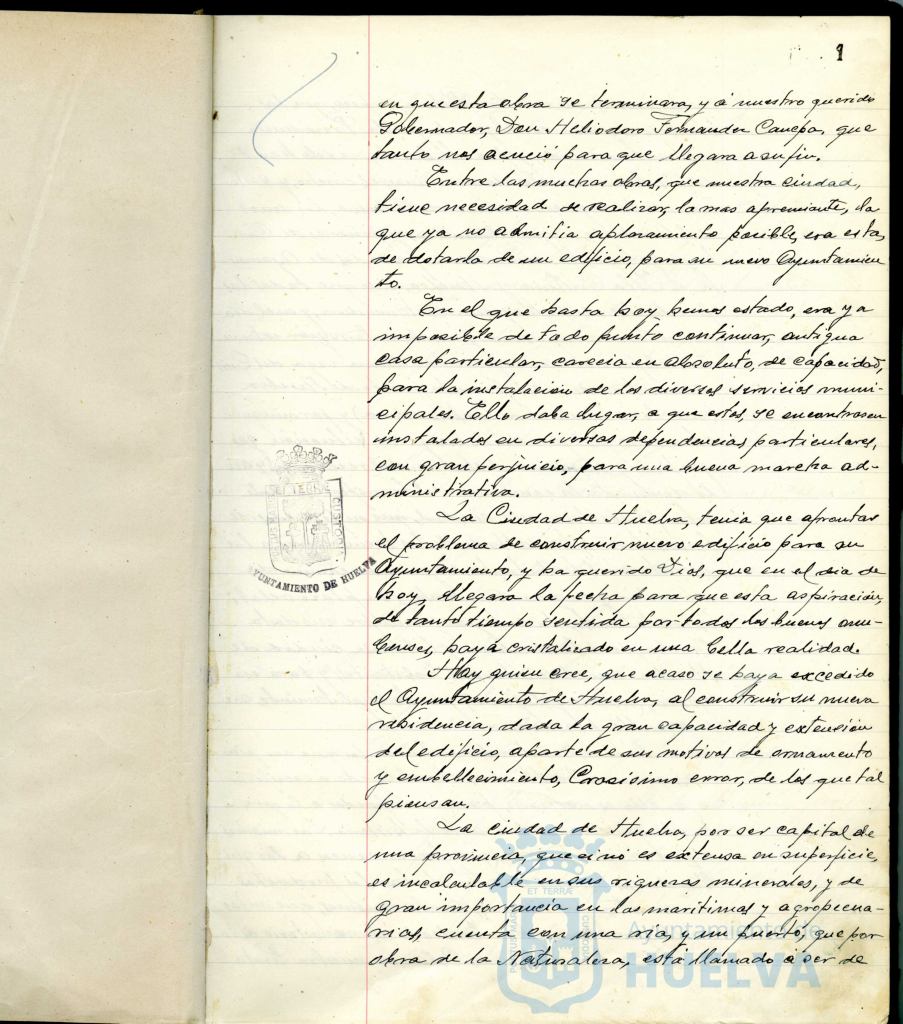 1
en que esta obra se terminara, y a nuestro querido
Gobernador, Don Heliodoro Fernandez Canepa, que
tanto nos acució para que llegara a su fin.
Entre las muchas obras, que nuestra ciudad,
tiene necesidad de realizar, la mas apremiante, la
que ya no admitia aplazamiento posible, era esta,
de dotarla de un edificio, para su nuevo Ayuntamien
to.
En el que hasta hoy, hemos estado, era ya
imposible de todo punto continuar, antigua
casa particular, carecia en absoluto, de capacidad,
para la instalación de los diversos servicios muni-
cipales. Ello daba lugar, a que estos, se encontrasen
instalados en diversas dependencias particulares,
con gran perjuicio, para una buena marcha ad-
ministrativa.
La Ciudad de Huelva, tenia que afrontar
el problema de construir nuevo edificio para su
Ayuntamiento, y ha querido Dios, que en el dia de
hoy, llegara la fecha para que esta aspiración,
de tanto tiempo sentida por todos los buenos onu-
benses, haya cristalizado en una bella realidad.
Hay quien cree, que acaso se haya excedido
el Ayuntamiento de Huelva, al construir su nueva
residencia, dada la gran capacidad y extensión
del edificio, aparte de sus motivos de ornamento
y embellecimiento, Crasisimo error, de los que tal
piensan.
La ciudad de Huelva, por ser capital de
una provincia, que si nó es extensa en superficie,
es incalculable en sus riquezas minerales, y de
gran importancia en las maritimas y agropecua-
rias, cuenta con una ria, y un puerto, que por
obra de la Naturaleza, está llamado a ser de
ET TERRÆ
CUSTODIA
AYUNTAMIENTO DE HUELVA
ET TERRÆ
Ayuntamiento de
HUELVA